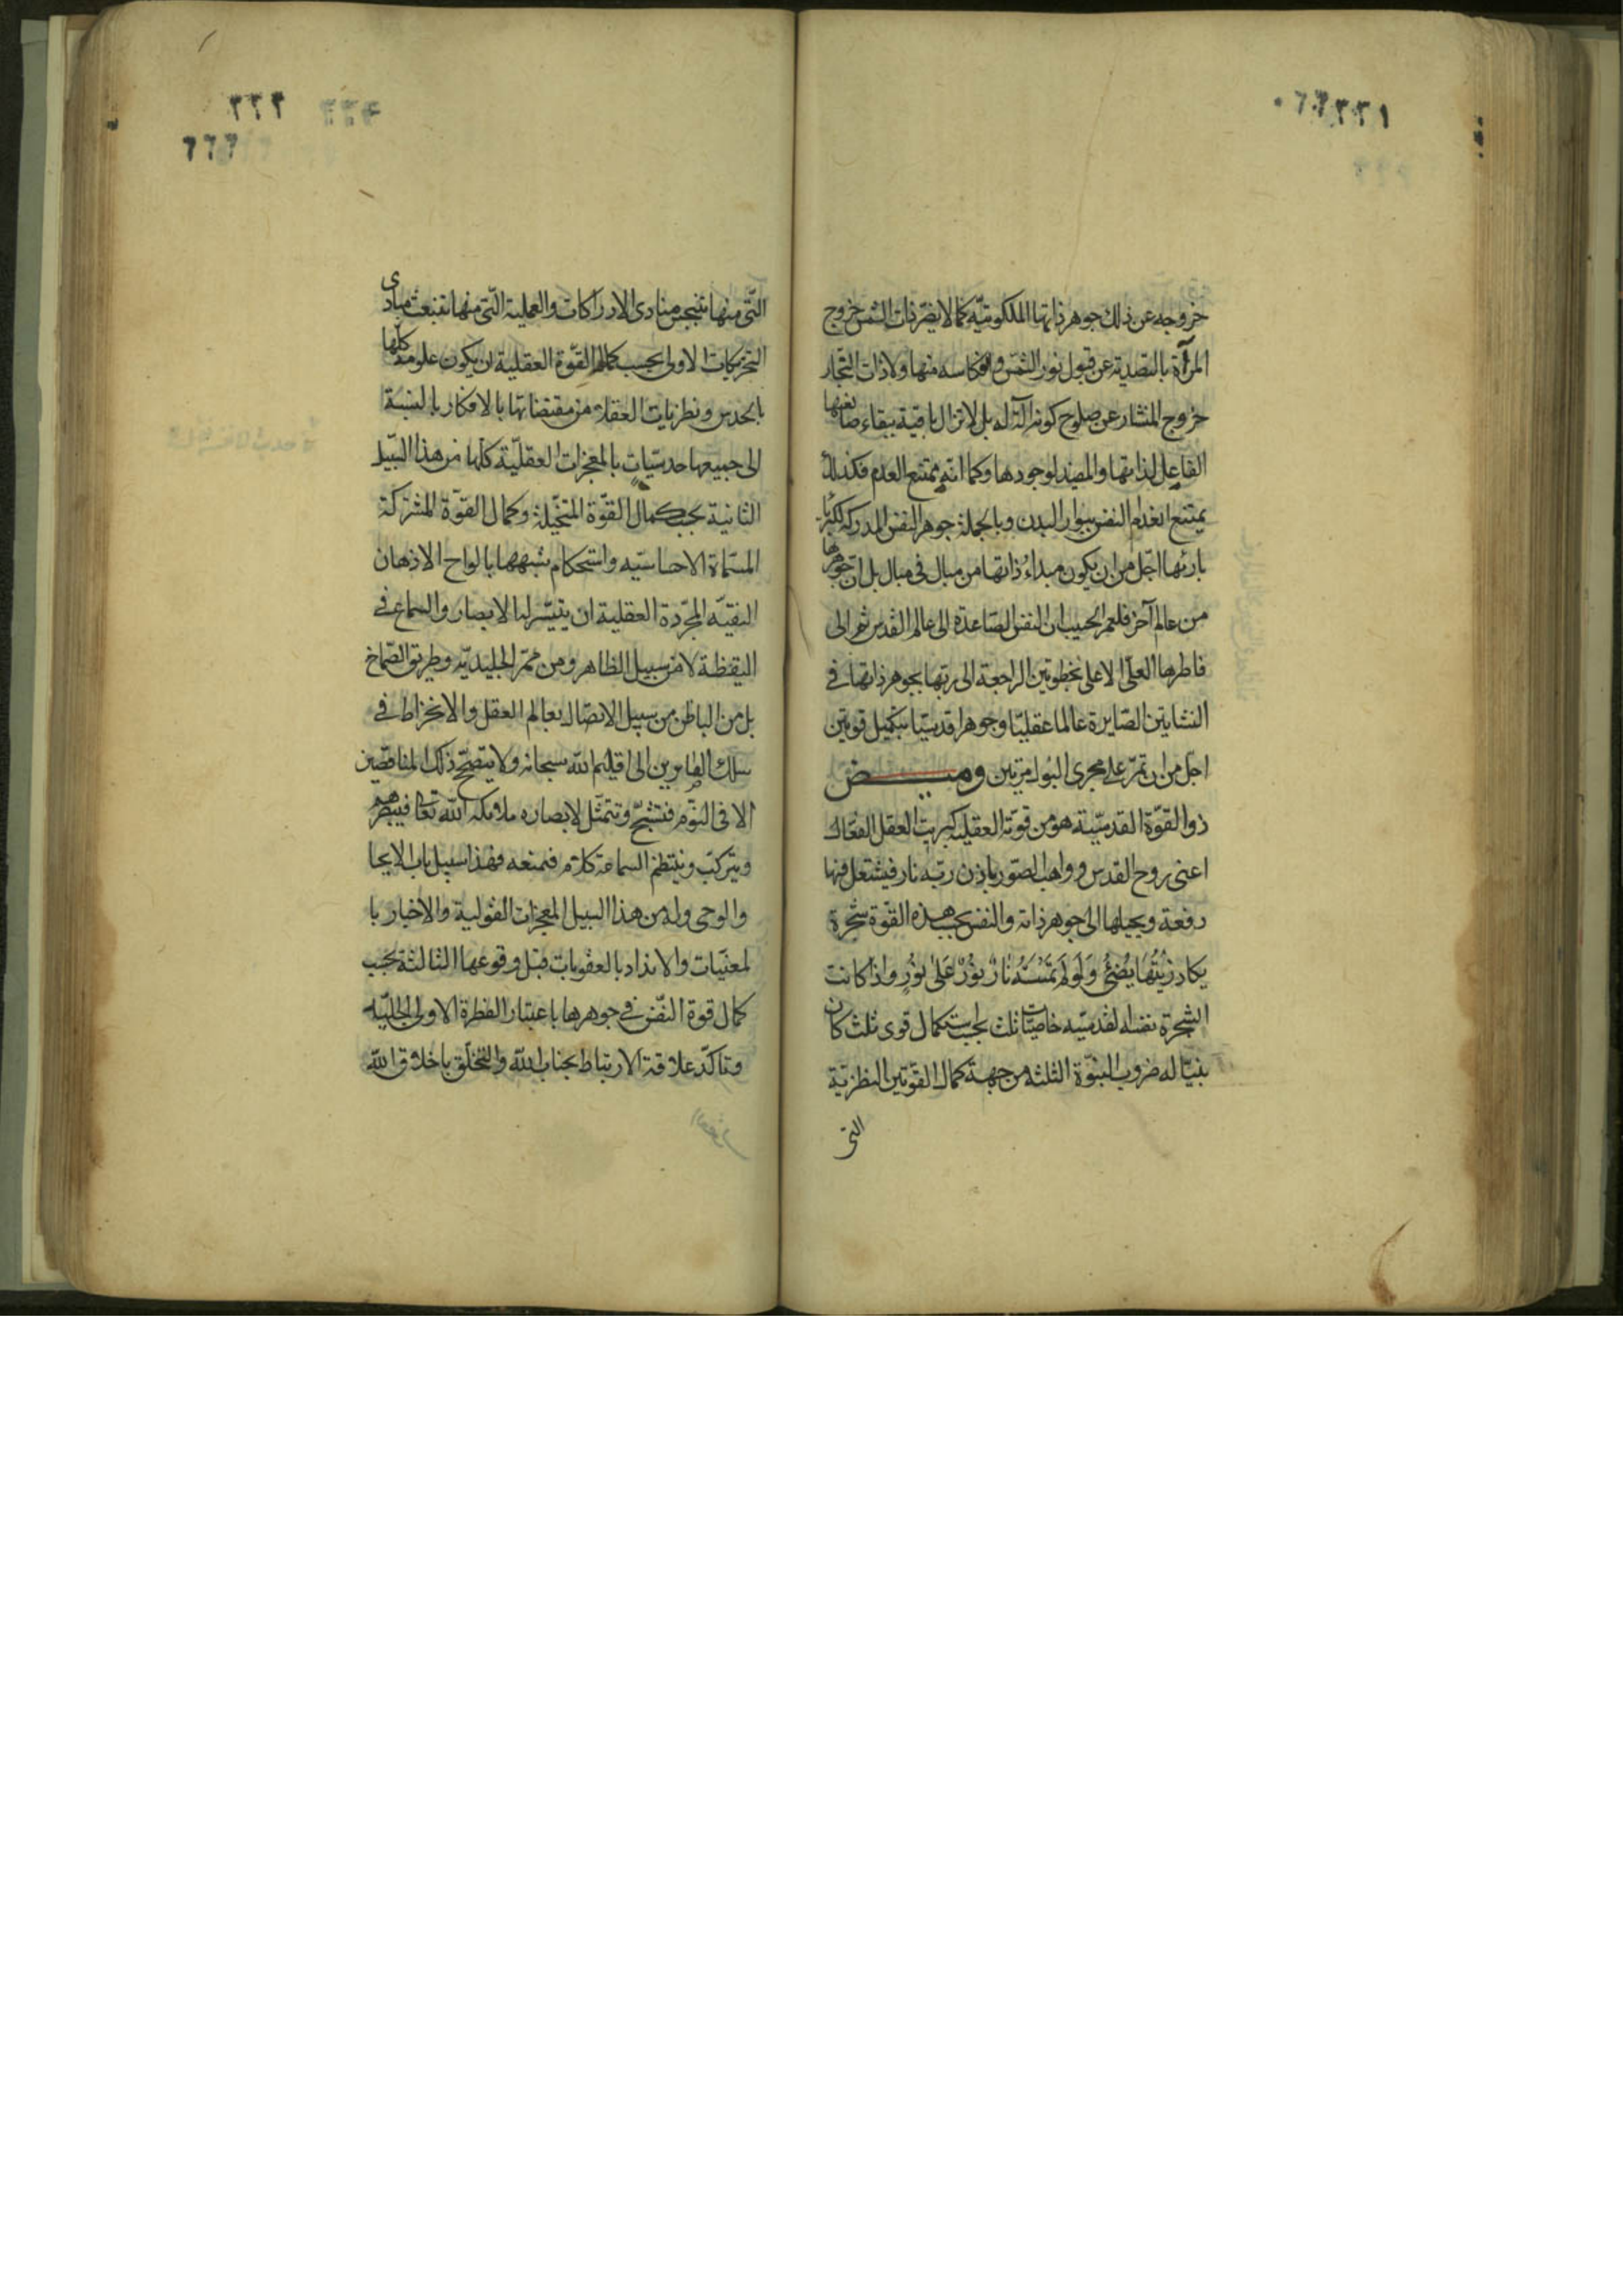 ٢٢١
خروجه عن ذلك جوهر ذاتها الملكوتيّة كما لا يضرّ ذات الشمس خروج
المرآة بالتصدية عن قبول نور الشمس وانعكاسه منها ولا ذات النّجار
خروج المنشار عن صلوح كونه آلة له بل لا تزال باقية ببقاء صانعها
الفاعل لذاتها والمفيد لوجودها وكما انّه يمتنع العدم فكذلك
يمتنع انعدام النفس ببوار البدن وبالجملة جوهر النفس المدركة لكبرياء
بارئها اجّل من ان يكون مبداء ذاتها من مبال في مبال بل انّ جوهرها
من عالم آخر فلعمر الحبيب ان النفس الصّاعدة الى عالم القدس ثم الى
فاطرها العلّى الاعلى بخطوتين الراجعة الى ربّها بجوهر ذاتها في
النشاتين الصّايرة عالما عقليّا وجوهرا قدسيّا بتكميل قوتين
اجلّ من ان تمرّ على مجرى البول مرّتين وميض
ذو القوّة القدسيّة هو من قوته العقلية كبريت العقل الفعّال
اعنى روح القدس وواهب الصّور باذن ربّه نار فيشتعل فيها
دفعة ويحيلها الى جوهر ذاته والنفس بحسب هذه القوّة شجرة
يكاد زَيْتُها يُضيئُ وَلَو لَم تَمْسَسْهُ نارٌ نُورٌ عَلى نُورٍ واذا كانت
الشجرة نفسا له لقدسيّه خاصيّات ثلث بحسب استكمال قوى ثلث كان
نبيّا له ضروب النبوّة الثلثه من جهة كمال القوّتين النظريّة
التى
٢٢٢
٦٦٦
التّى منها تنبجس مبادى الادراكات والعملية التّى منها تنبعث مبادى
التحريكات الاولى بحسب كمال القوّة العقلية ان يكون علومه كلّها
بالحدس ونظريات العقلاء من مقتضاتها بالافكار بالنسبة
الى جميعها حدسيّات بالمعجزات العقليّة كلّها من هذا السّبيل
الثانية بحسب كمال القوّة المتخيّلة وكمال القوّة المشتركة
المسمّاة الاحساسيّه واستحكام تشبهها بالواح الاذهان
النقيّه المجرّدة العقلية ان يتيسّر لها الابصار والسماع في
اليقظة لا من سبيل الظاهر ومن ممرّ الجليديّه وطريق الصّماخ
بل من الباطن من سبيل الاتصّال بعالم العقل والانخراط في
سلك الصابرين الى اقليم الله سبحانه ولا يتصحّح ذلك لناقصين
الا في النّوم فتشبّح وتتمثّل لابصاره ملائكة الله تعا فيبصرهم
ويتركّب وينتظم السماعة كلام فيسمعه فهذا سبيل باب الايحا
والوحى وله من هذا السبيل المعجزات القولية والاخبار با
لمغيّبات والانذار بالعقوبات قبل وقوعها الثالثة بحسب
كمال قوة النّفس في جوهرها باعتبار الفطرة الاولى الجبليّه
وتاكّد علاقة الارتباط بجناب الله والتخلّق باخلاق الله